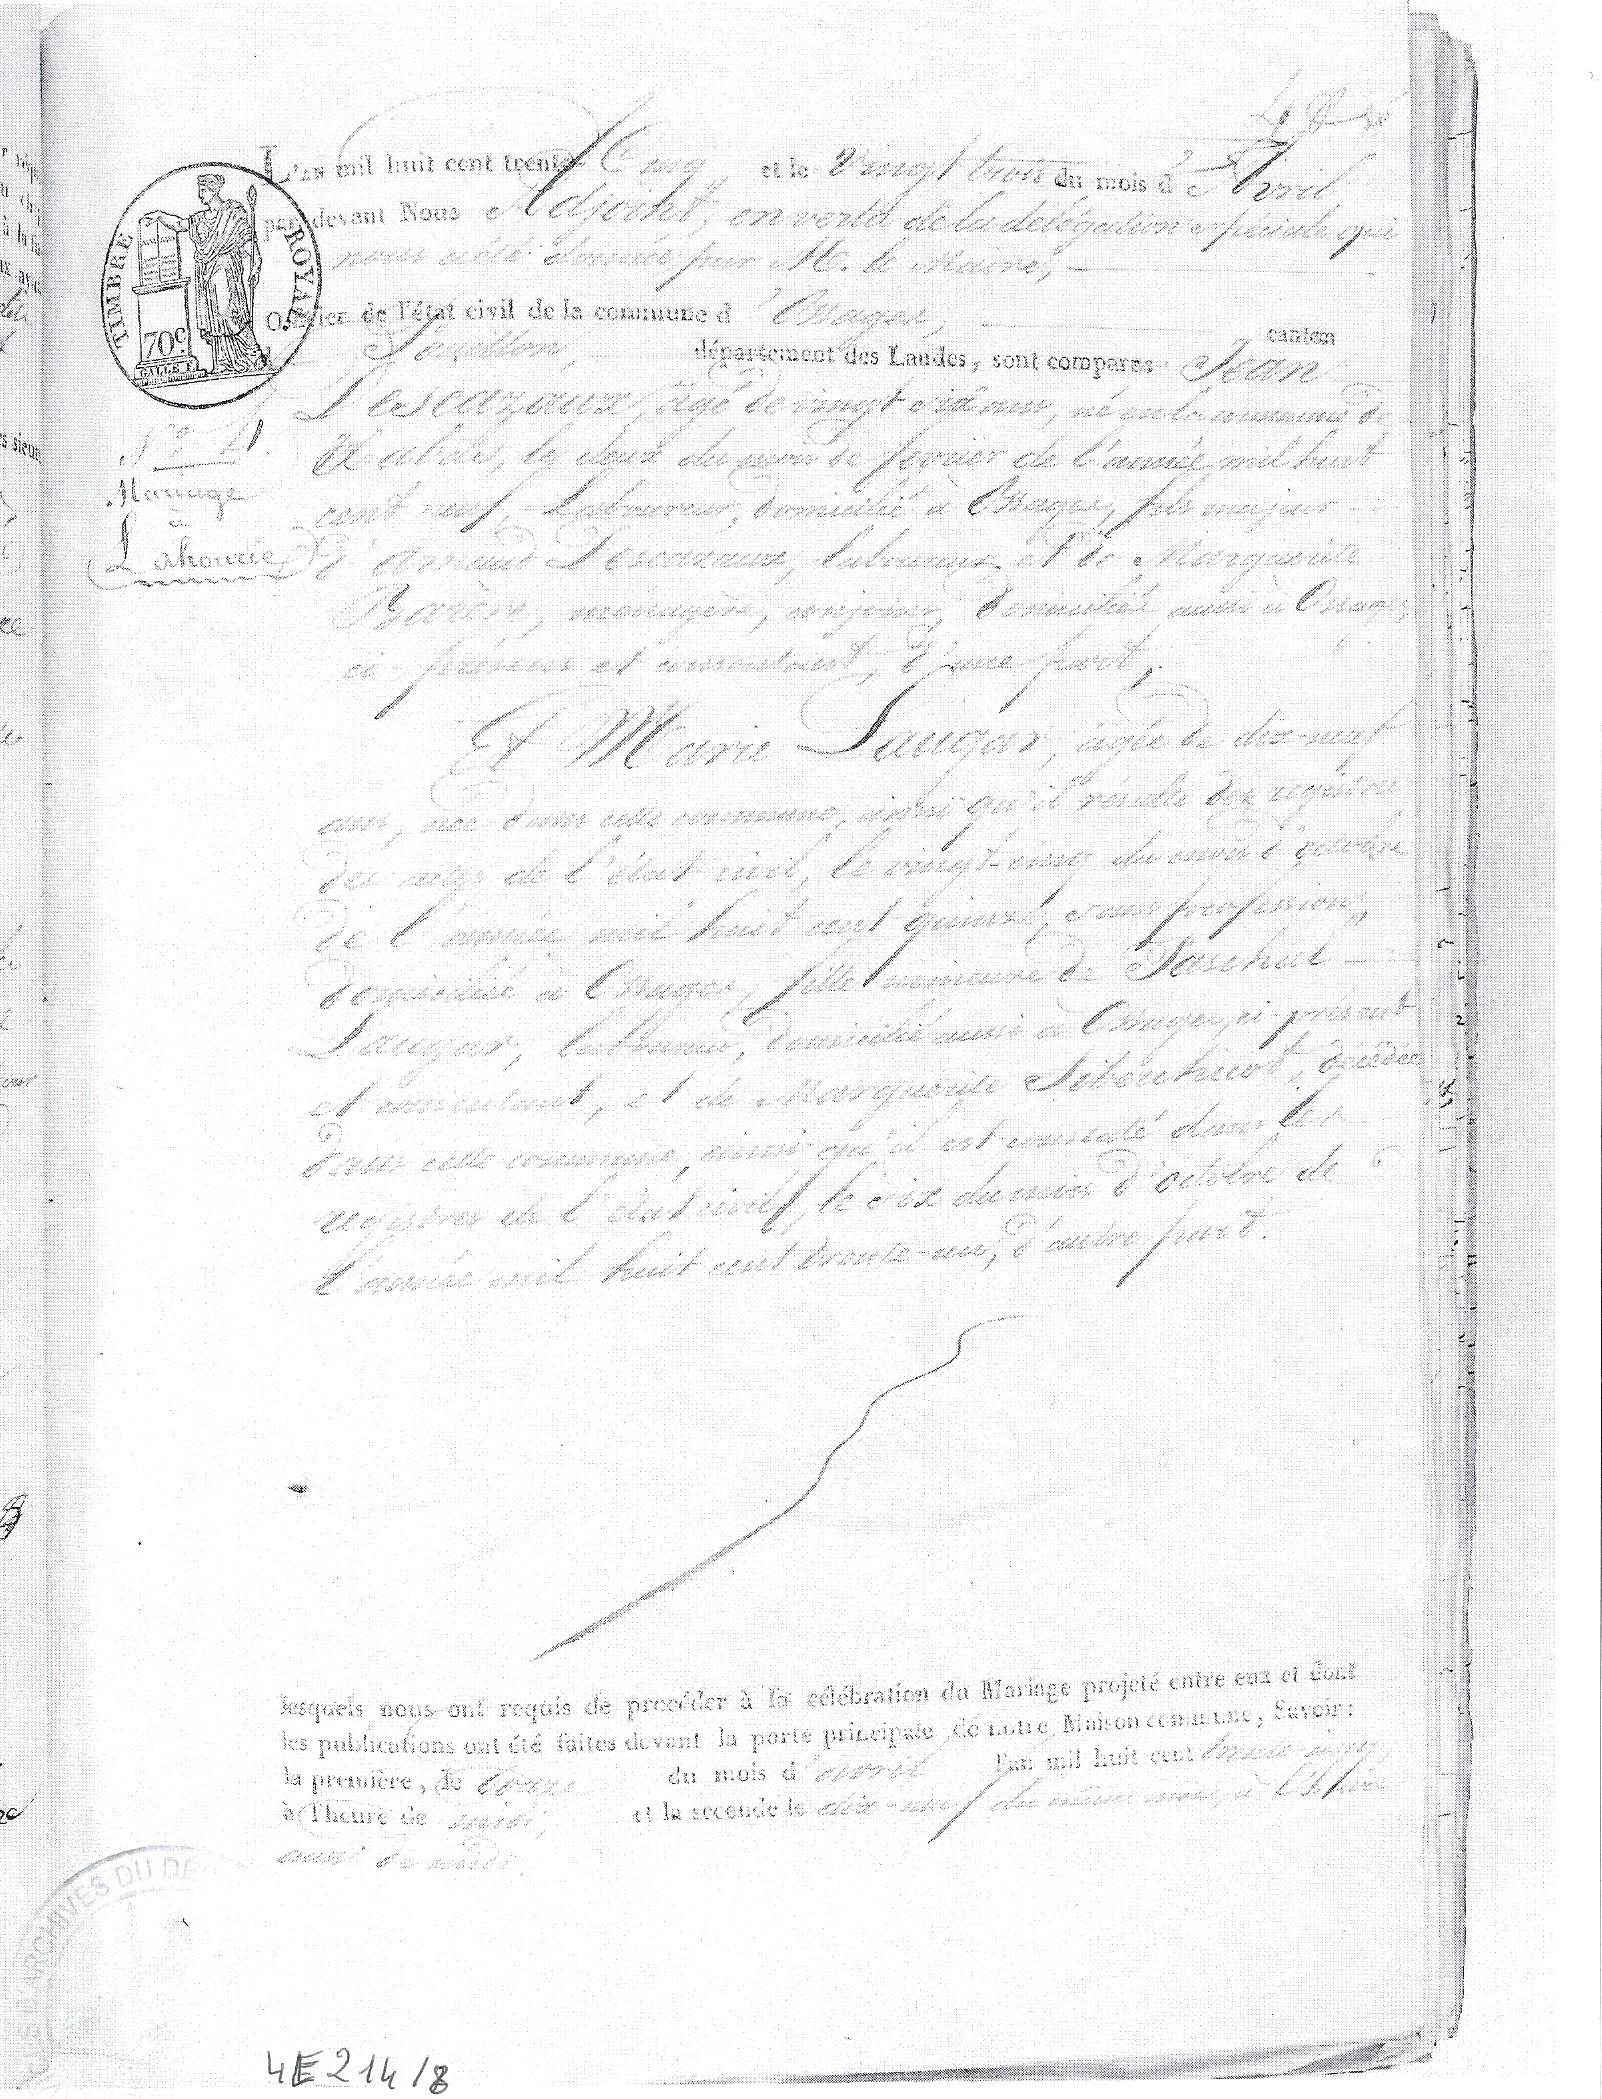 L'an mil huit cent trente Cinq et le Vingt trois du mois d'Avril
par devant Nous Adjoint, en vertu de la délégation spéciale qui
nous a été donnée par M. le Maire,
Officier de l'état civil de la commune d'Ozages, canton
Pouillon, département des Landes, sont comparus Jean
Lescazaux, agé de vingt six ans, né en la commune de
le deux du mois de fevrier de l'année mil huit
cent neuf, Laboureur, domicilié à Ozages, fils majeur
d'Arnaud Lescazaux, laboureur et de Marguerite
ménagère, conjoints, domiciliés aussi à Ozages,
ci-présens et consentant, d'une part;
Et Marie Saugar, agée de dix-neuf
ans, née dans cette commune, ainsi qu'il résulte des registres
des actes de l'état civil, le vingt-cinq du mois d'octobre
de l'année mil huit cent quinze, sans profession,
domiciliée à Ozages, fille mineure de Paschal
Saugar, laboureur, domicilié aussi à Ozages, ci-présent
et consentant, et de Marguerite décédée
dans cette commune, ainsi qu'il est constaté dans les
registres de l'état civil, le six du mois d'octobre de
l'année mil huit cent trente-un, d'autre part.
lesquels nous ont requis de procéder à la célébration du Mariage projeté entre eux et dont
les publications ont été faites devant la porte principale de notre Maison commune, Savoir:
la première, le douze du mois d'avril l'an mil huit cent trente-cinq,
à l'heure de midi, et la seconde le dix-neuf du même mois, à l'heure
aussi de midi.
TIMBRE ROYAL
70c
Nº 4.
Mariage
à
Lahourie
ARCHIVES DU
4E214/8